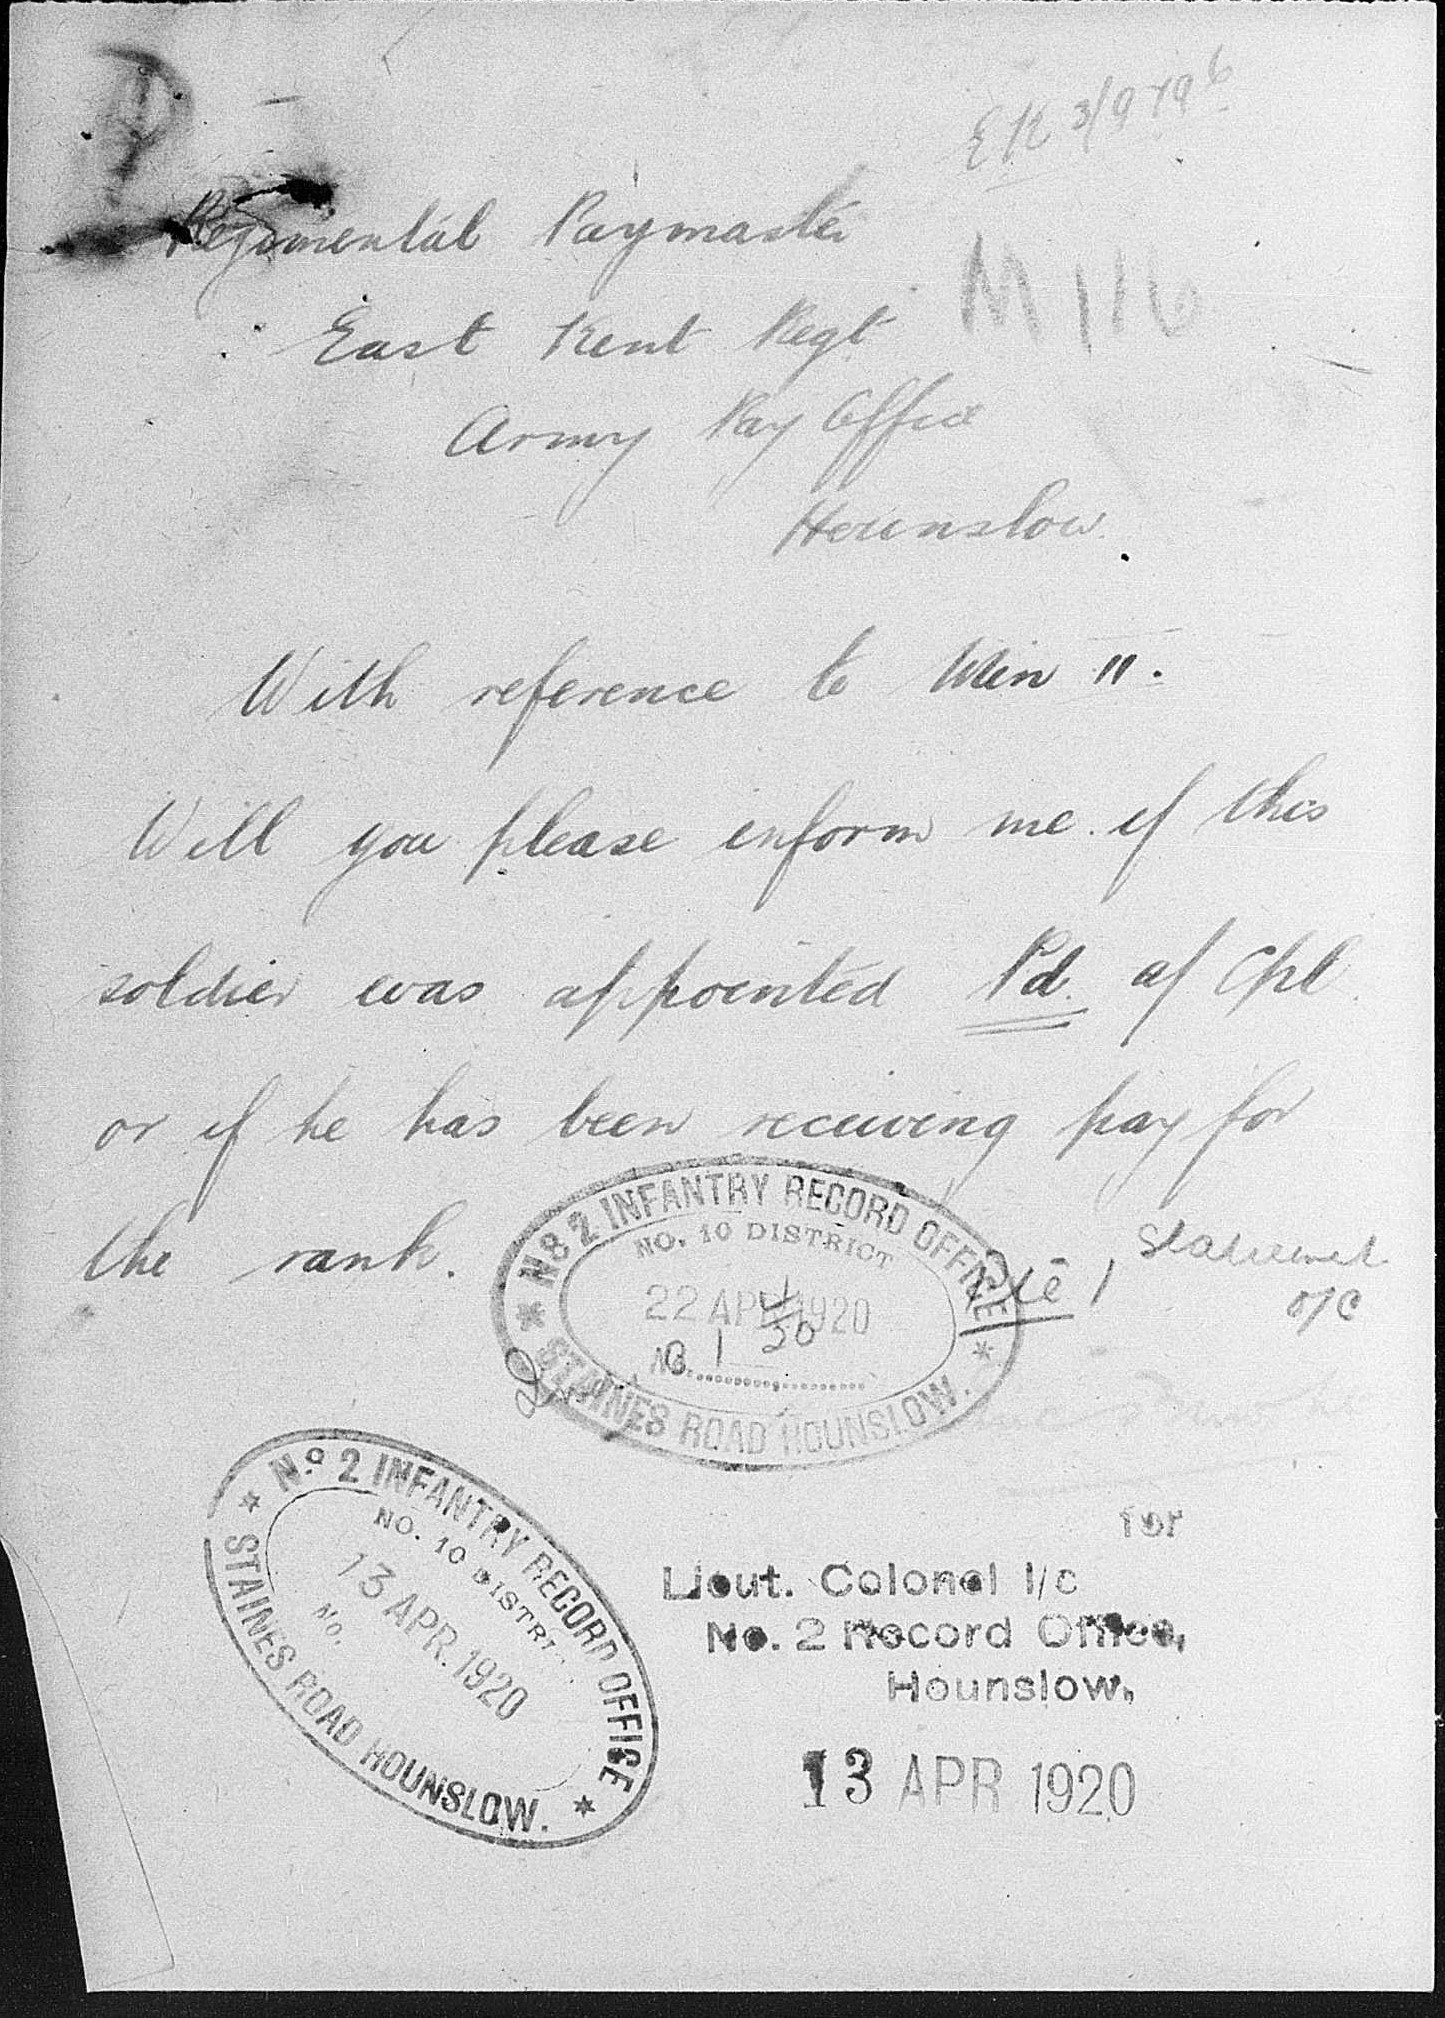 EK 3/9796
Regimental Paymaster
M 116
East Kent Regt
Army Pay Office
Hounslow.
With reference to Min 11.
Will you please inform me if this
soldier was appointed Pd. a/ Cpl.
or if he has been receiving pay for
the rank.
Statement
o/c
No 2 INFANTRY RECORD OFFICE
NO. 10 DISTRICT
22 APR 1920
No.
STAINES ROAD HOUNSLOW.
No. 2 INFANTRY RECORD OFFICE
NO. 10 DISTRI
13 APR. 1920
No.
STAINES ROAD HOUNSLOW.
for
Lieut. Colonel I/c
No. 2 Record Office,
Hounslow.
13 APR 1920